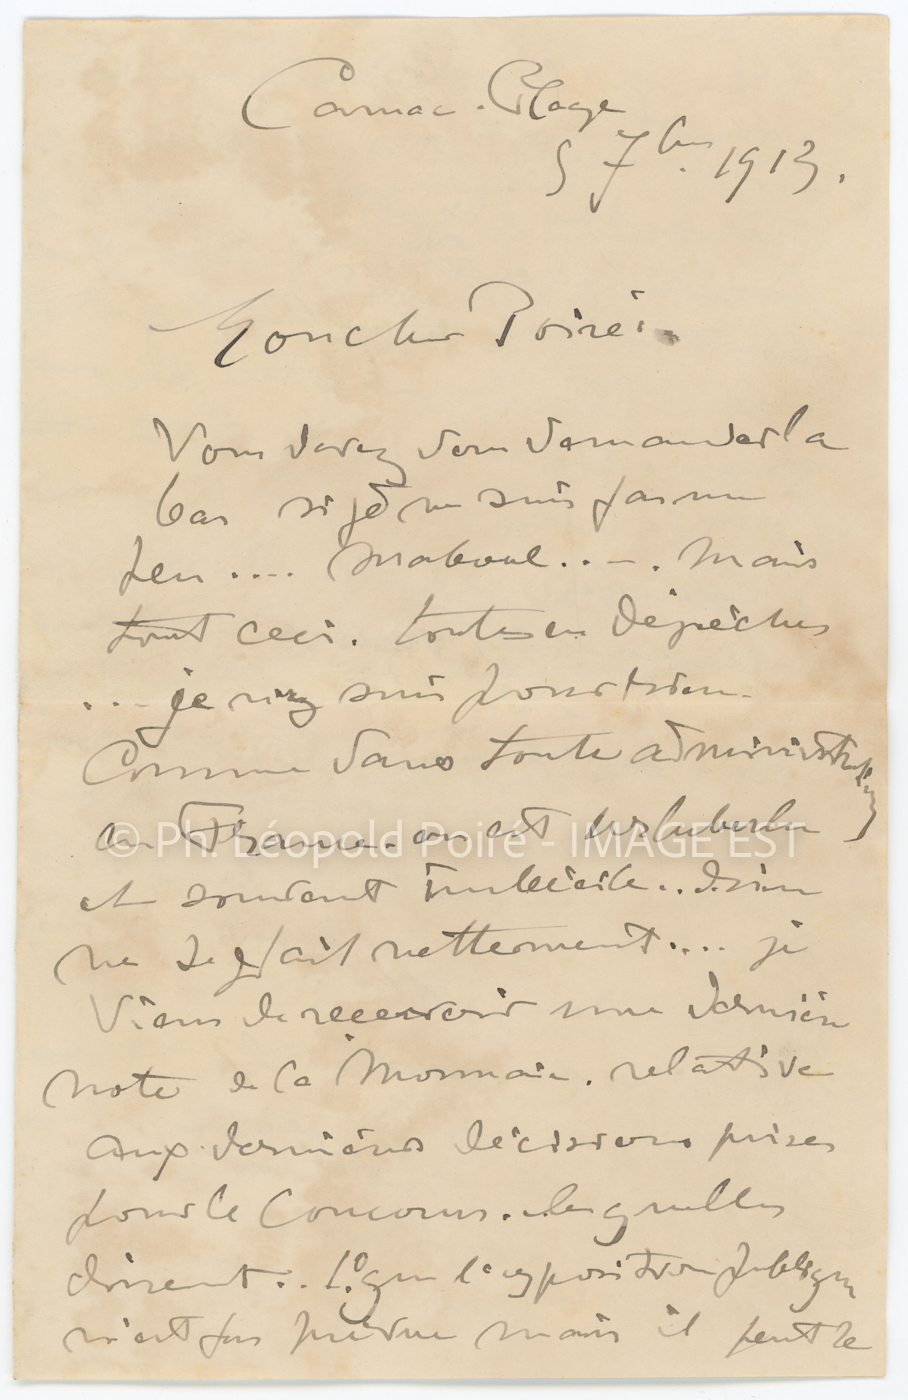 Carnac-Plage
5 7bre 1913.
Mon cher Poiré.
Vous devez vous demander la
bas si je ne suis pas un
peu .... maboul ..... Mais
tout ceci. toutes ces dépêches
... je n'y suis pour rien.
Comme dans toute administration
en France. on est hurluberlu
© Ph. Léopold Poiré - IMAGE EST
et souvent imbécile .. Rien
ne se fait nettement .... je
viens de recevoir une dernière
note de la Monnaie. relative
aux dernières décisions prises
pour le Concours. lesquelles
disent .. 1º que l'exposition publique
n'est pas prévue mais il peut se